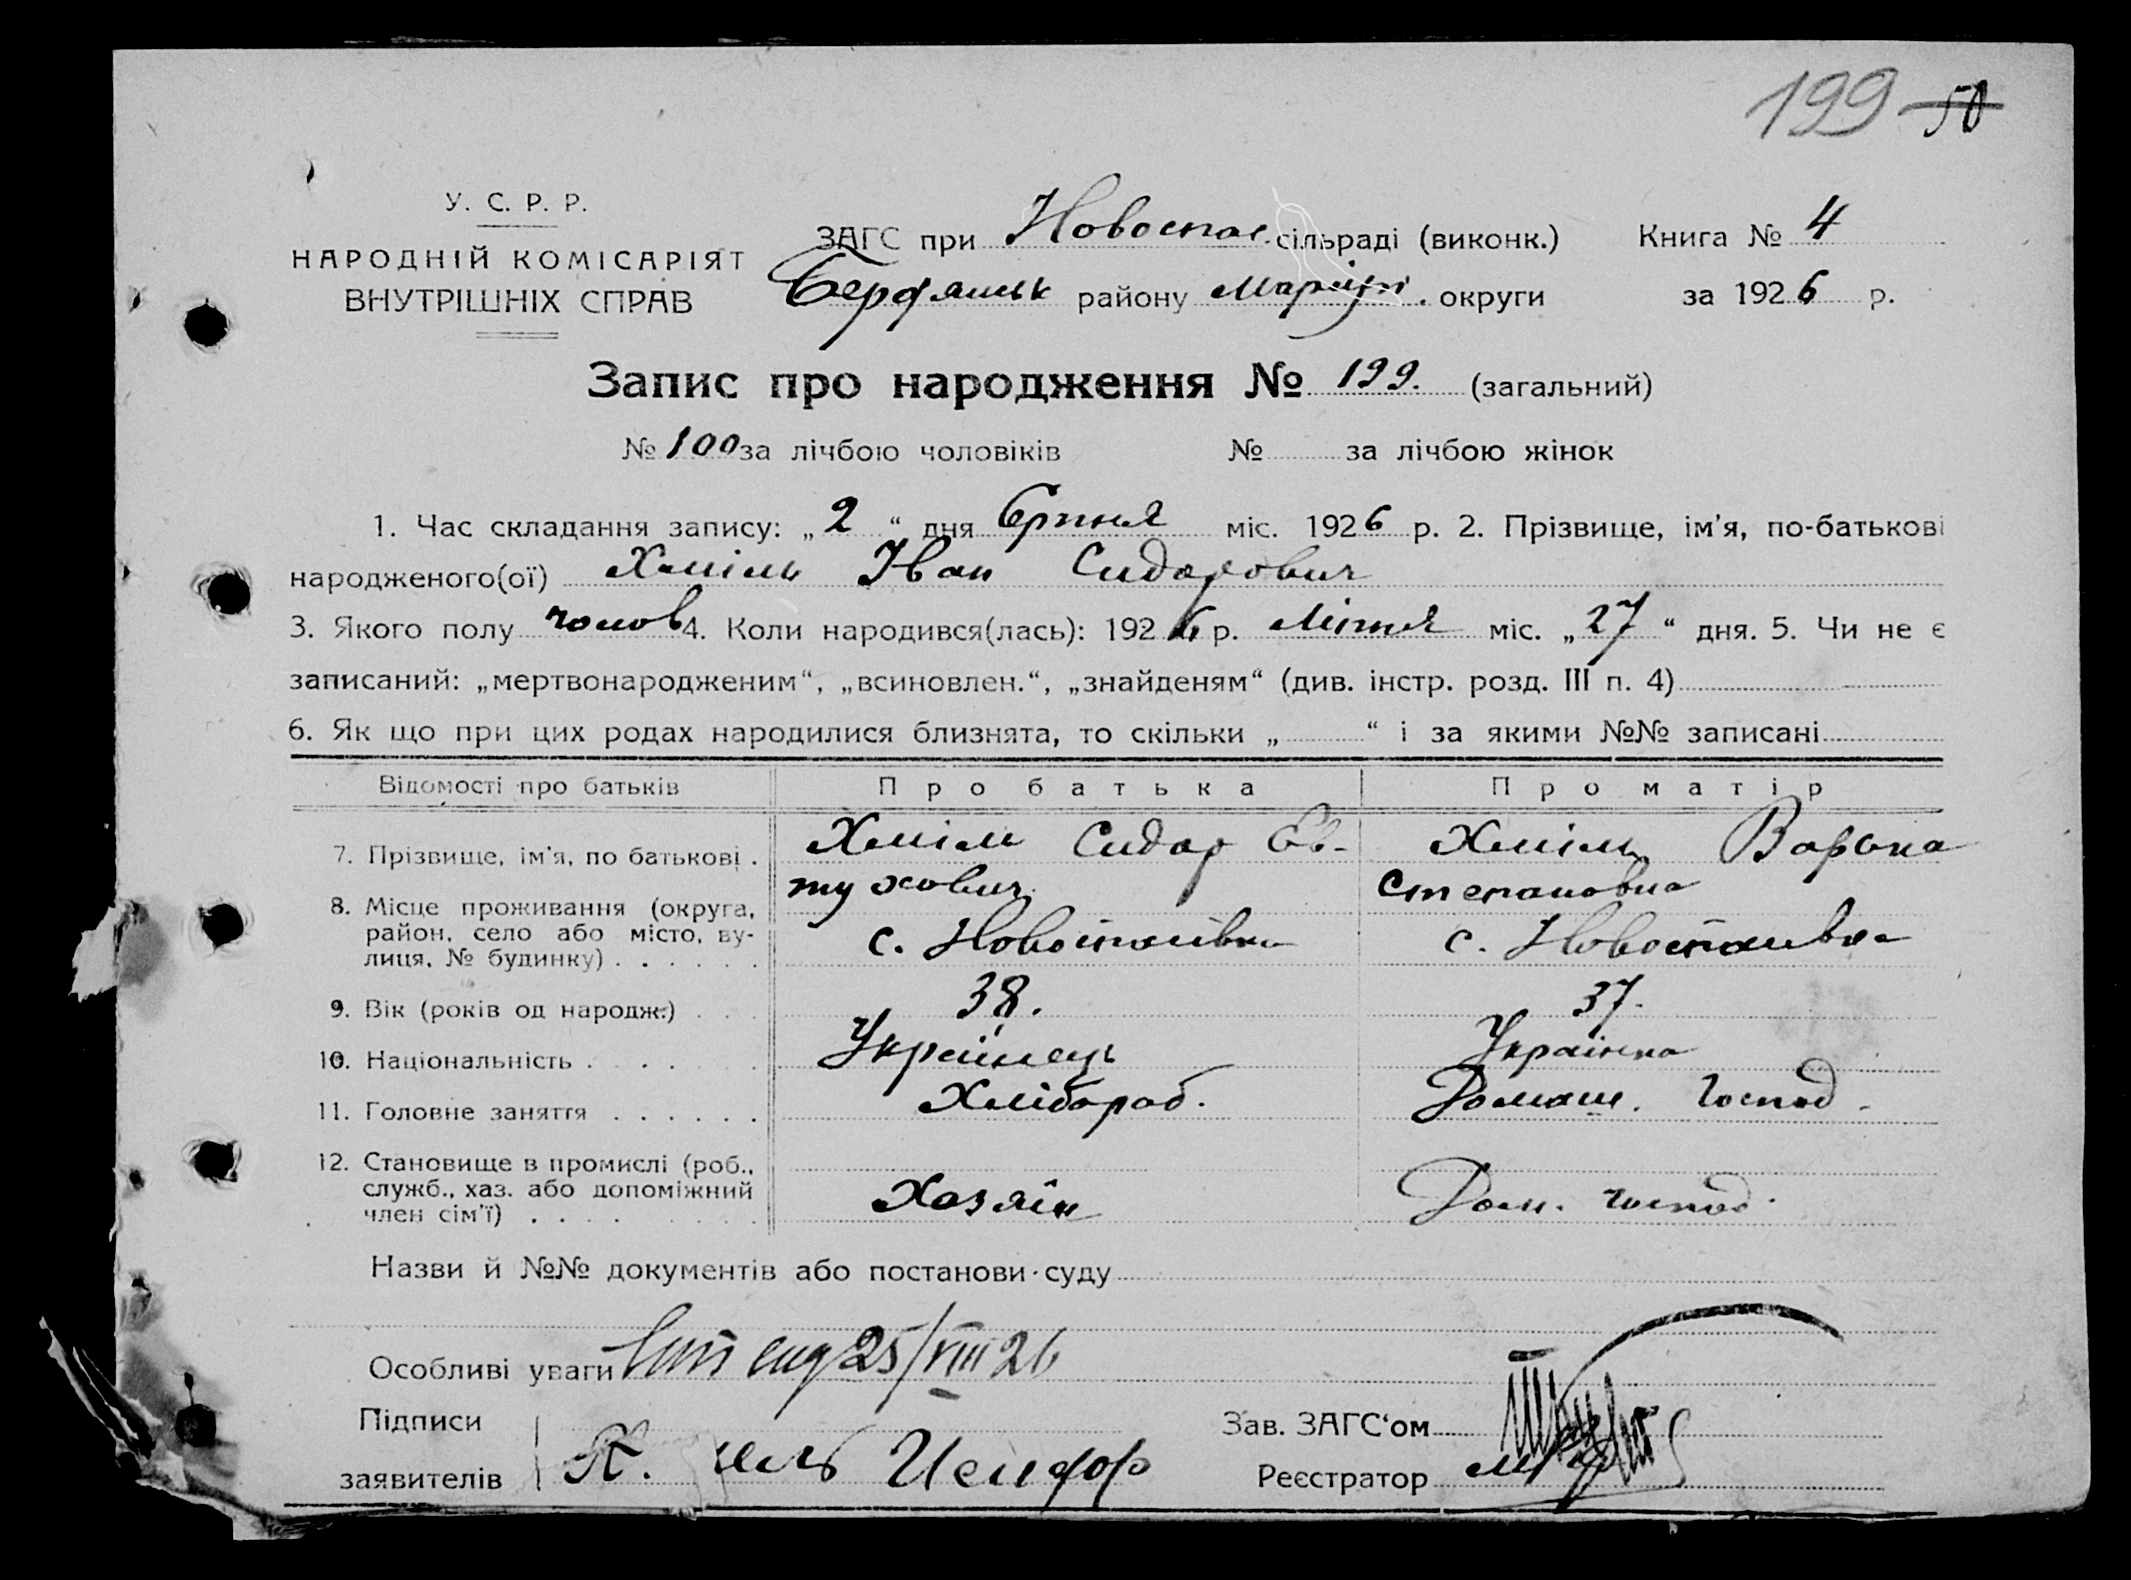 199 50
У. С. Р. Р.
НАРОДНІЙ КОМІСАРІЯТ
ВНУТРІШНІХ СПРАВ
ЗАГС при Новоспас. сільраді (виконк.) Книга № 4
Бердянськ району Маріуп. округи за 1926 р.
Запис про народження № 199. (загальний)
№ 100 за лічбою чоловіків № за лічбою жінок
1. Час складання запису: „2“ дня Серпня міс. 1926 р. 2. Прізвище, ім’я, по-батькові
народженого(ої) Хміль Іван Сидорович
3. Якого полу чолов 4. Коли народився(лась): 1926 р. Липня міс. „27“ дня. 5. Чи не є
записаний: „мертвонародженим“, „всиновлен.“, „знайденям“ (див. інстр. розд. III п. 4)
6. Як що при цих родах народилися близнята, то скільки „ “ і за якими №№ записані
Відомості про батьків Про батька Про матір
7. Прізвище, ім’я, по батькові . Хміль Сидор Ев- Хміль Варька
тухович Степановна
8. Місце проживання (округа,
район, село або місто, ву-
лиця, № будинку) . . . . . . с. Новоспасівка с. Новоспасивка
9. Вік (років од народж.) . . . 38. 37.
10. Національність . . . . . Українець Українка
11. Головне заняття . . . . . . Хлібороб. Домаш. Господ.
12. Становище в промислі (роб.,
служб., хаз. або допоміжний
член сім’ї) . . . . Хазяїн Дом. господ.
Назви й №№ документів або постанови суду
Особливі уваги 25/VIII 26
Підписи
заявителів
Зав. ЗАГС‘ом
Реєстратор